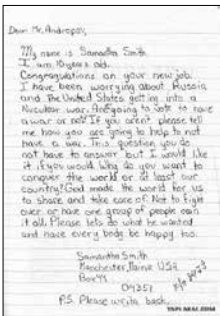 Dear Mr. Andropov,
My name is Samantha Smith.
I am 10 years old.
Congratulations on your new job.
I have been worrying about Russia
and the United States getting into a
nuclear war. Are you going to vote to have
a war or not? If you aren't please tell
me how you are going to help to not
have a war. This question you do
not have to answer, but I would like
it if you would. Why do you want to
conquer the world or at least our
country? God made the world for us
to share and take care of. Not to fight
over or have one group of people own
it all. Please lets do what he wanted
and have every body be happy too.
Samantha Smith
Manchester, Maine USA
Box 44
04351
P.S. Please write back.